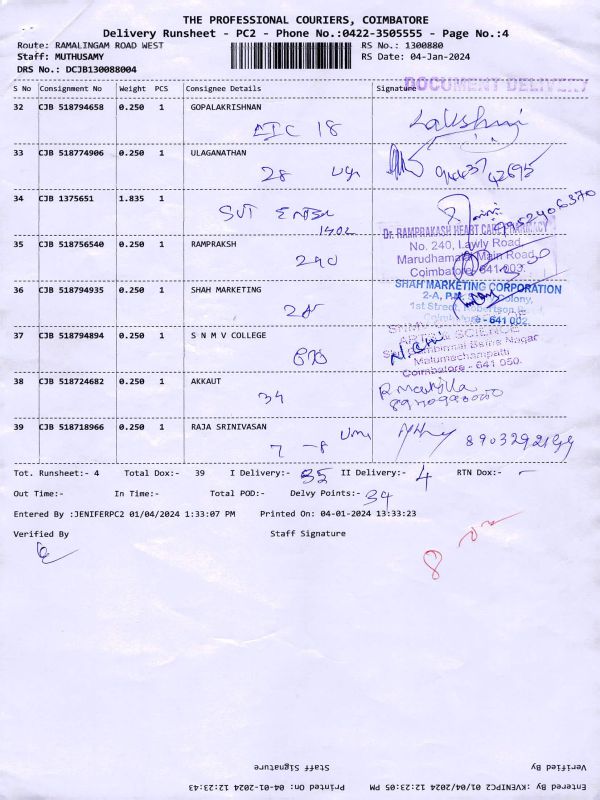 THE PROFESSIONAL COURIERS, COIMBATORE
Delivery Runsheet - PC2 - Phone No.:0422-3505555 - Page No.:4
Route: RAMALINGAM ROAD WEST RS No.: 1300880
Staff: MUTHUSAMY RS Date: 04-Jan-2024
DRS No.: DCJB130088004
DOCUMENT DELIVERY
S No Consignment No Weight PCS Consignee Details Signature
32 CJB 518794658 0.250 1 GOPALAKRISHNAN
18 Lakshmi
33 CJB 518774906 0.250 1 ULAGANATHAN
28
34 CJB 1375651 1.835 1
SVT
1402 9952406370
Dr. RAMPRAKASH HEART CARE
35 CJB 518756540 0.250 1 RAMPRAKSH
No. 240, Lawly Road,
240 Marudhamalai Main Road,
Coimbatore - 641 003.
36 CJB 518794935 0.250 1 SHAH MARKETING
SHAH MARKETING CORPORATION
2-A,
1st Street, Robertson Road
Coimbatore - 641 002.
37 CJB 518794894 0.250 1 S N M V COLLEGE
ARTS & SCIENCE
Nagar
Malumachampatti
Coimbatore - 641 050.
38 CJB 518724682 0.250 1 AKKAUT
34
39 CJB 518718966 0.250 1 RAJA SRINIVASAN
7 -8
Tot. Runsheet:- 4 Total Dox:- 39 I Delivery:- 35 II Delivery:- 4 RTN Dox:- -
Out Time:- In Time:- Total POD:- Delvy Points:- 34
Entered By :JENIFERPC2 01/04/2024 1:33:07 PM Printed On: 04-01-2024 13:33:23
Verified By Staff Signature
8
Verified By Staff Signature
Entered By: KVENIPC2 01/04/2024 12:23:05 PM Printed On: 04-01-2024 12:23:43